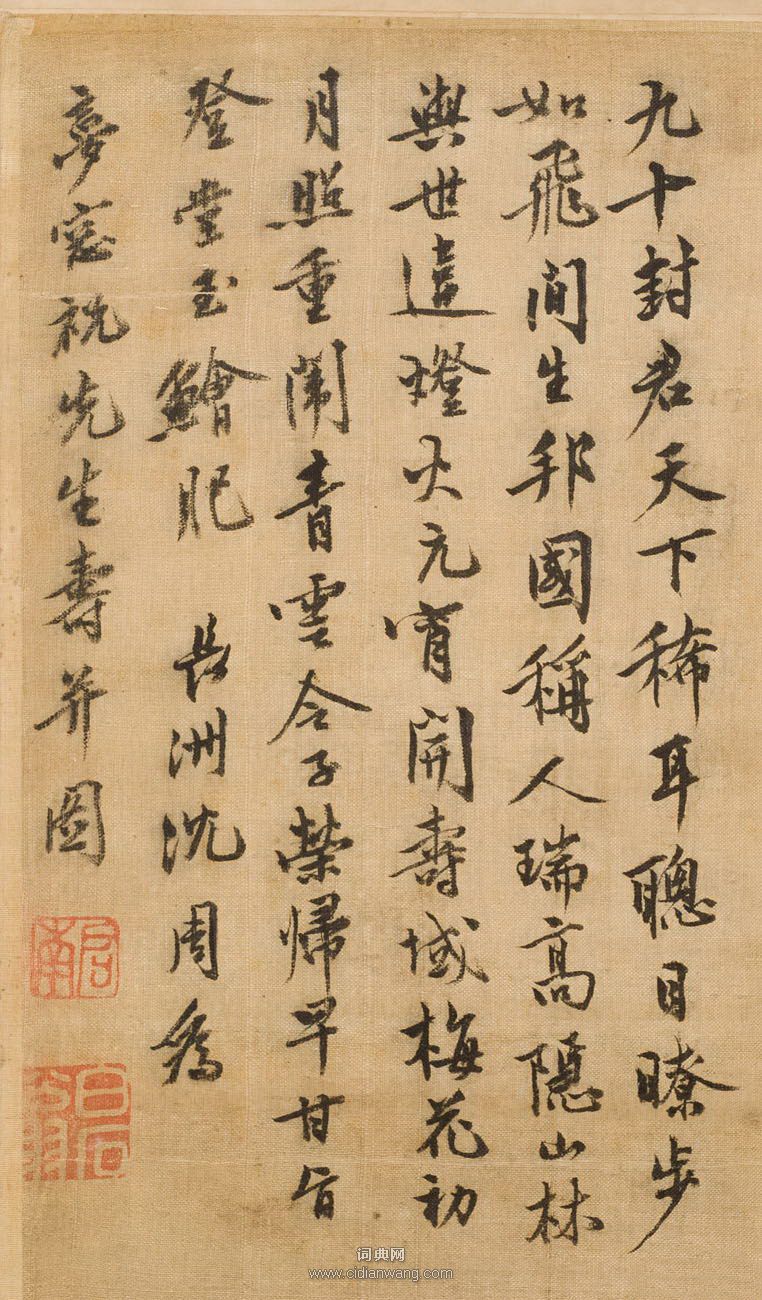 九十封君天下稀耳聰目瞭步
如飛間生邦國稱人瑞高隱山林
與世違燈火元宵開壽域梅花初
月照重闈青雲令子榮歸早甘旨
登堂玉鱠肥 長洲沈周為
夢窓祝先生壽并圖
啟南
词典网
www.cidianwang.com